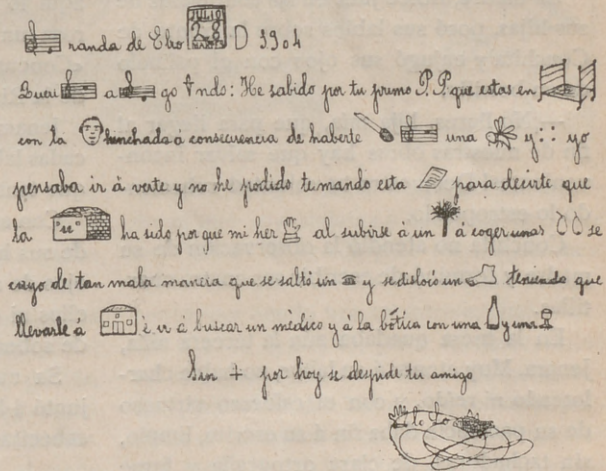 randa de Ebro JULIO 28 D 1904
Queri a go ndo: He sabido por tu primo P. P. que estas en
con la hinchada á consecuencia de haberte una y :: yo
pensaba ir á verte y no he podido te mando esta para decirte que
la "se" ha sido por que mi her al subirse á un á coger unas se
cayo de tan mala manera que se saltó un y se dislocó un teniendo que
llevarle á é ir á buscar un médico y á la bótica con una y una
Sin + por hoy se despide tu amigo